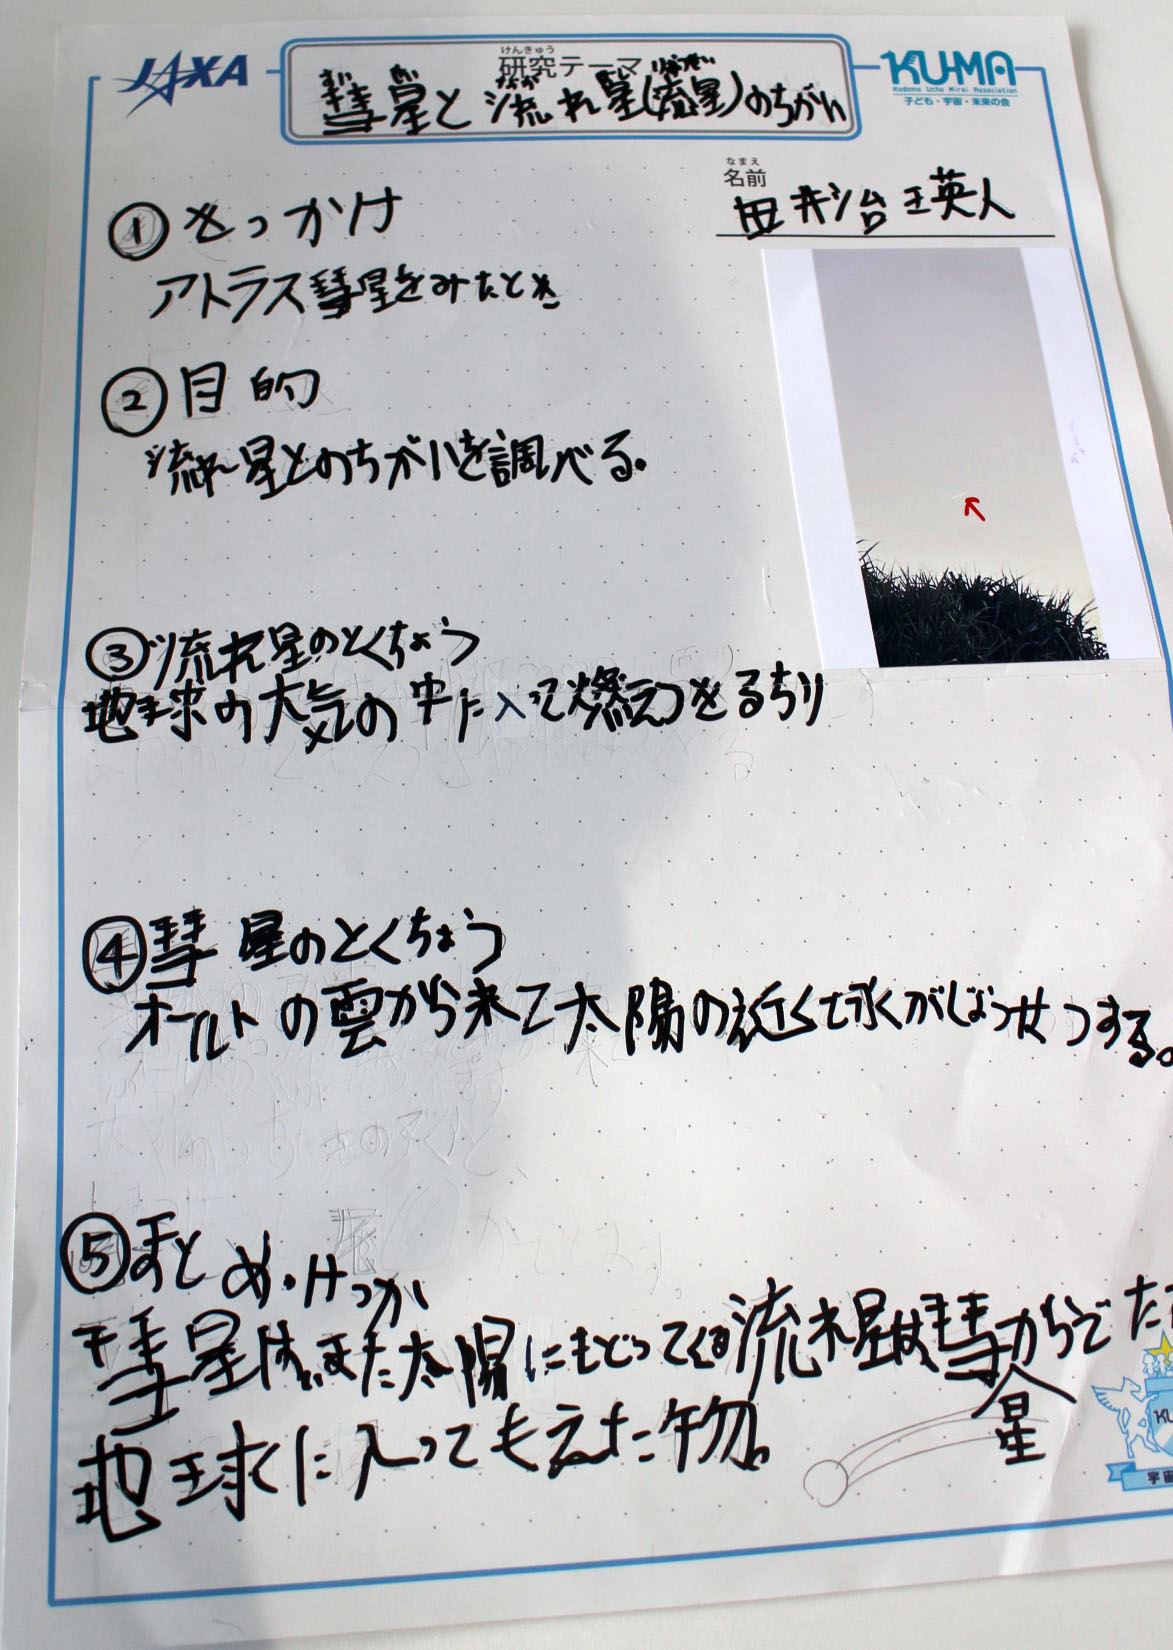 JAXA
けんきゅう
研究テーマ
すい せい なが りゅうせい
彗星と流れ星(流星)のちがい
KU-MA
Kodomo Uchu Mirai Association
子ども・宇宙・未来の会
なまえ
名前
①きっかけ
アトラス彗星をみたとき
②目的
流れ星とのちがいを調べる。
③流れ星のとくちょう
地球の大気の中に入って燃えつきるちり
④彗星のとくちょう
オールトの雲から来て太陽の近くで氷がじょうはつする。
⑤まとめ・けっか
彗星は、また太陽にもどってくる流れ星は、彗星からでた
地球に入ってもえた物。